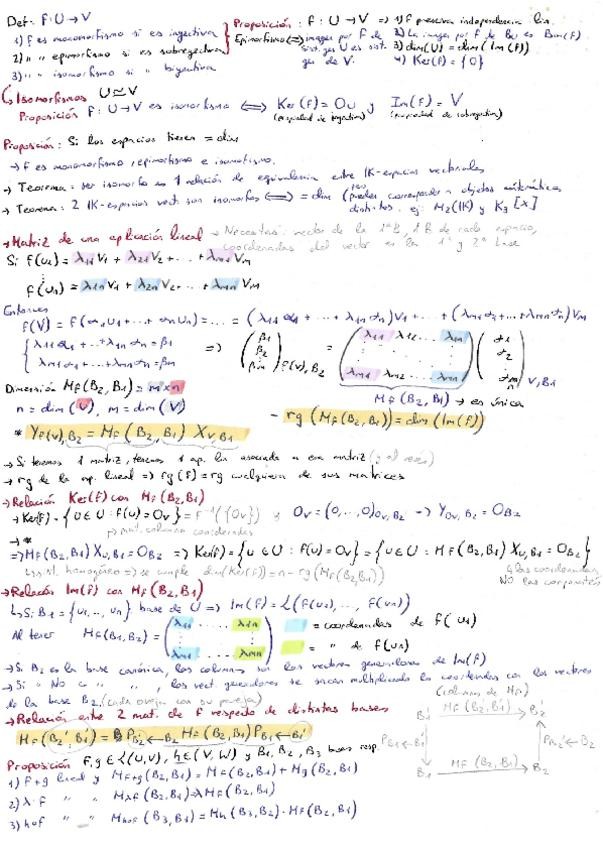 Def: f: U → V
1) f es monomorfismo si es inyectiva
2) " " epimorfismo si es sobreyectiva
3) " " isomorfismo si " biyectiva
Proposición: f: U → V => 1) f preserva independencia lin.
Epimorfismo <=> imagen por f de sist. gen U es sist. gen de V.
3) dim(U) = dim(Im(f))
4) Ker(f) = {0}
Isomorfismos U ≃ V
Proposición f: U → V es isomorfismo <=> Ker(f) = 0u y Im(f) = V
(propiedad de inyectiva) (propiedad de sobreyectiva)
Proposición: Si los espacios tienen = dim
→ f es monomorfismo, epimorfismo e isomorfismo.
→ Teorema: ser isomorfo es 1 relación de equivalencia entre IK-espacios vectoriales
→ Teorema: 2 IK-espacios vect. son isomorfos <=> = dim (pueden corresponder a objetos matemáticos distintos. ej: M2(IK) y K3[x]
→ Matriz de una aplicación lineal → Necesitas: vector de la 1ªB, 1 B de cada espacio, coordenadas del vector en la 1ª y 2ª base
Si f(u1) = λ11 V1 + λ21 V2 + ... + λm1 Vm
f(un) = λ1n V1 + λ2n V2 + ... + λmn Vm
Entonces
f(V) = f(α1 u1 + ... + αn un) = ... = (λ11 α1 + ... + λ1n αn) V1 + ... + (λm1 α1 + ... + λmn αn) Vm
{ λ11 α1 + ... + λ1n αn = β1
λm1 α1 + ... + λmn αn = βm
=> (β1 β2 βm) f(v), B2 = (λ11 λ12 ... λ1n ... λm1 λm2 ... λmn) (α1 α2 ... αn) V, B1
Mf(B2, B1) → es única
Dimensión Mf(B2, B1) = m×n
n = dim(U), m = dim(V)
- rg(Mf(B2, B1)) = dim(Im(f))
* Yf(v), B2 = Mf(B2, B1) Xv, B1
→ Si tenemos 1 matriz, tenemos 1 ap. lin asociada a esa matriz (y al revés)
→ rg de la ap. lineal => rg(f) = rg cualquiera de sus matrices
→ Relación Ker(f) con Mf(B2, B1)
→ Ker(f) = {u ∈ U : f(u) = 0v} = f⁻¹({0v}) y 0v = (0, ..., 0)0v, B2 → Y0v, B2 = 0B2
→ * mat. columna coordenadas
=> Mf(B2, B1) Xu, B1 = 0B2 => Ker(f) = {u ∈ U : f(u) = 0v} = {u ∈ U : Mf(B2, B1) Xu, B1 = 0B2}
sist. homogéneo => se cumple dim(Ker(f)) = n - rg(Mf(B2, B1))
las coordenadas, NO las componentes
→ Relación Im(f) con Mf(B2, B1)
Si B1 = {u1, ..., un} base de U => Im(f) = L(f(u1), ..., f(un))
Al tener Mf(B1, B2) = (λ11 ... λ1n ... λm1 ... λmn) = coordenadas de f(u1)
= " de f(un)
→ Si B2 es la base canónica, las columnas son los vectores generadores de Im(f)
→ Si " NO " " " , los vect. generadores se sacan multiplicando las coordenadas con los vectores de la base B2 (cada oveja con su pareja) (columnas de Mf)
→ Relación entre 2 mat. de f respecto de distintas bases
Mf(B2', B1') = PB2'←B2 Mf(B2, B1) PB1←B1'
B1' Mf(B2', B1') B2'
PB1←B1' PB2'←B2
B1 Mf(B2, B1) B2
Proposición f, g ∈ L(U, V), h ∈ (V, W) y B1, B2, B3 bases resp.
1) f+g lineal y Mf+g(B2, B1) = Mf(B2, B1) + Mg(B2, B1)
2) λ·f " " Mλf(B2, B1) = λMf(B2, B1)
3) hof " " Mhof(B3, B1) = Mh(B3, B2) · Mf(B2, B1)